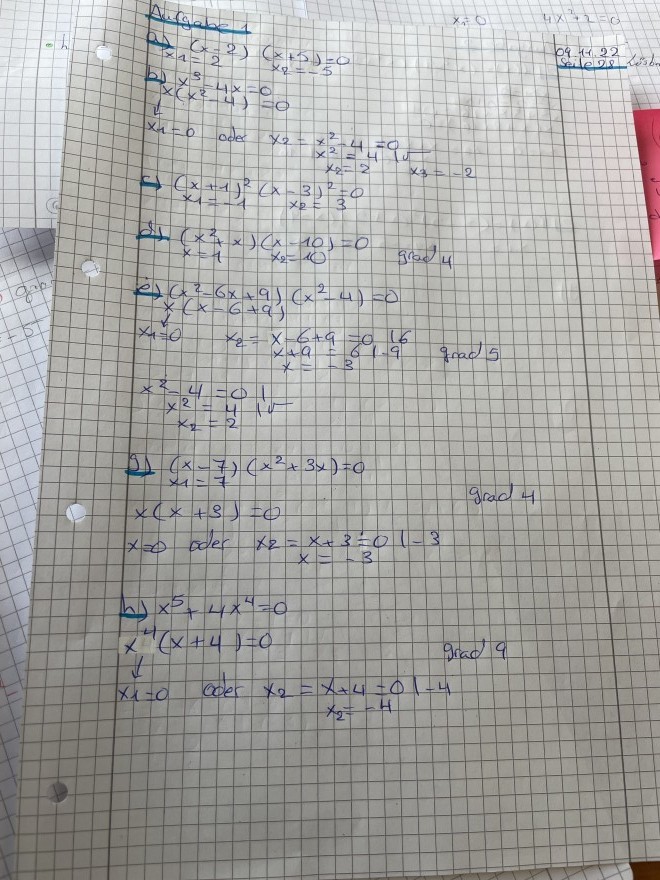 x=0 4x²+2=0
Aufgabe 1
09.11.22
Seite 28
a) (x-2) (x+5)=0
x1=2 x2=-5
b) x³-4x=0
x(x²-4)=0
x1=0 oder x2= x²-4=0
x²=4 |√
x2=2 x3=-2
c) (x+1)²(x-3)²=0
x1=-1 x2=3
d) (x²+x)(x-10)=0
x=1 x2=10 grad 4
e) (x²-6x+9) (x²-4)=0
x(x-6+9)
x1=0 x2= x-6+9=0 |6
x+9=6 |-9 grad 5
x=-3
x²-4=0 |
x²=4 |√
x2=2
g) (x-7) (x²+3x)=0
x1=7
grad 4
x(x+3)=0
x=0 oder x2= x+3=0 |-3
x=-3
h) x⁵+4x⁴=0
x⁴(x+4)=0
grad 9
x1=0 oder x2= x+4=0 |-4
x2=-4